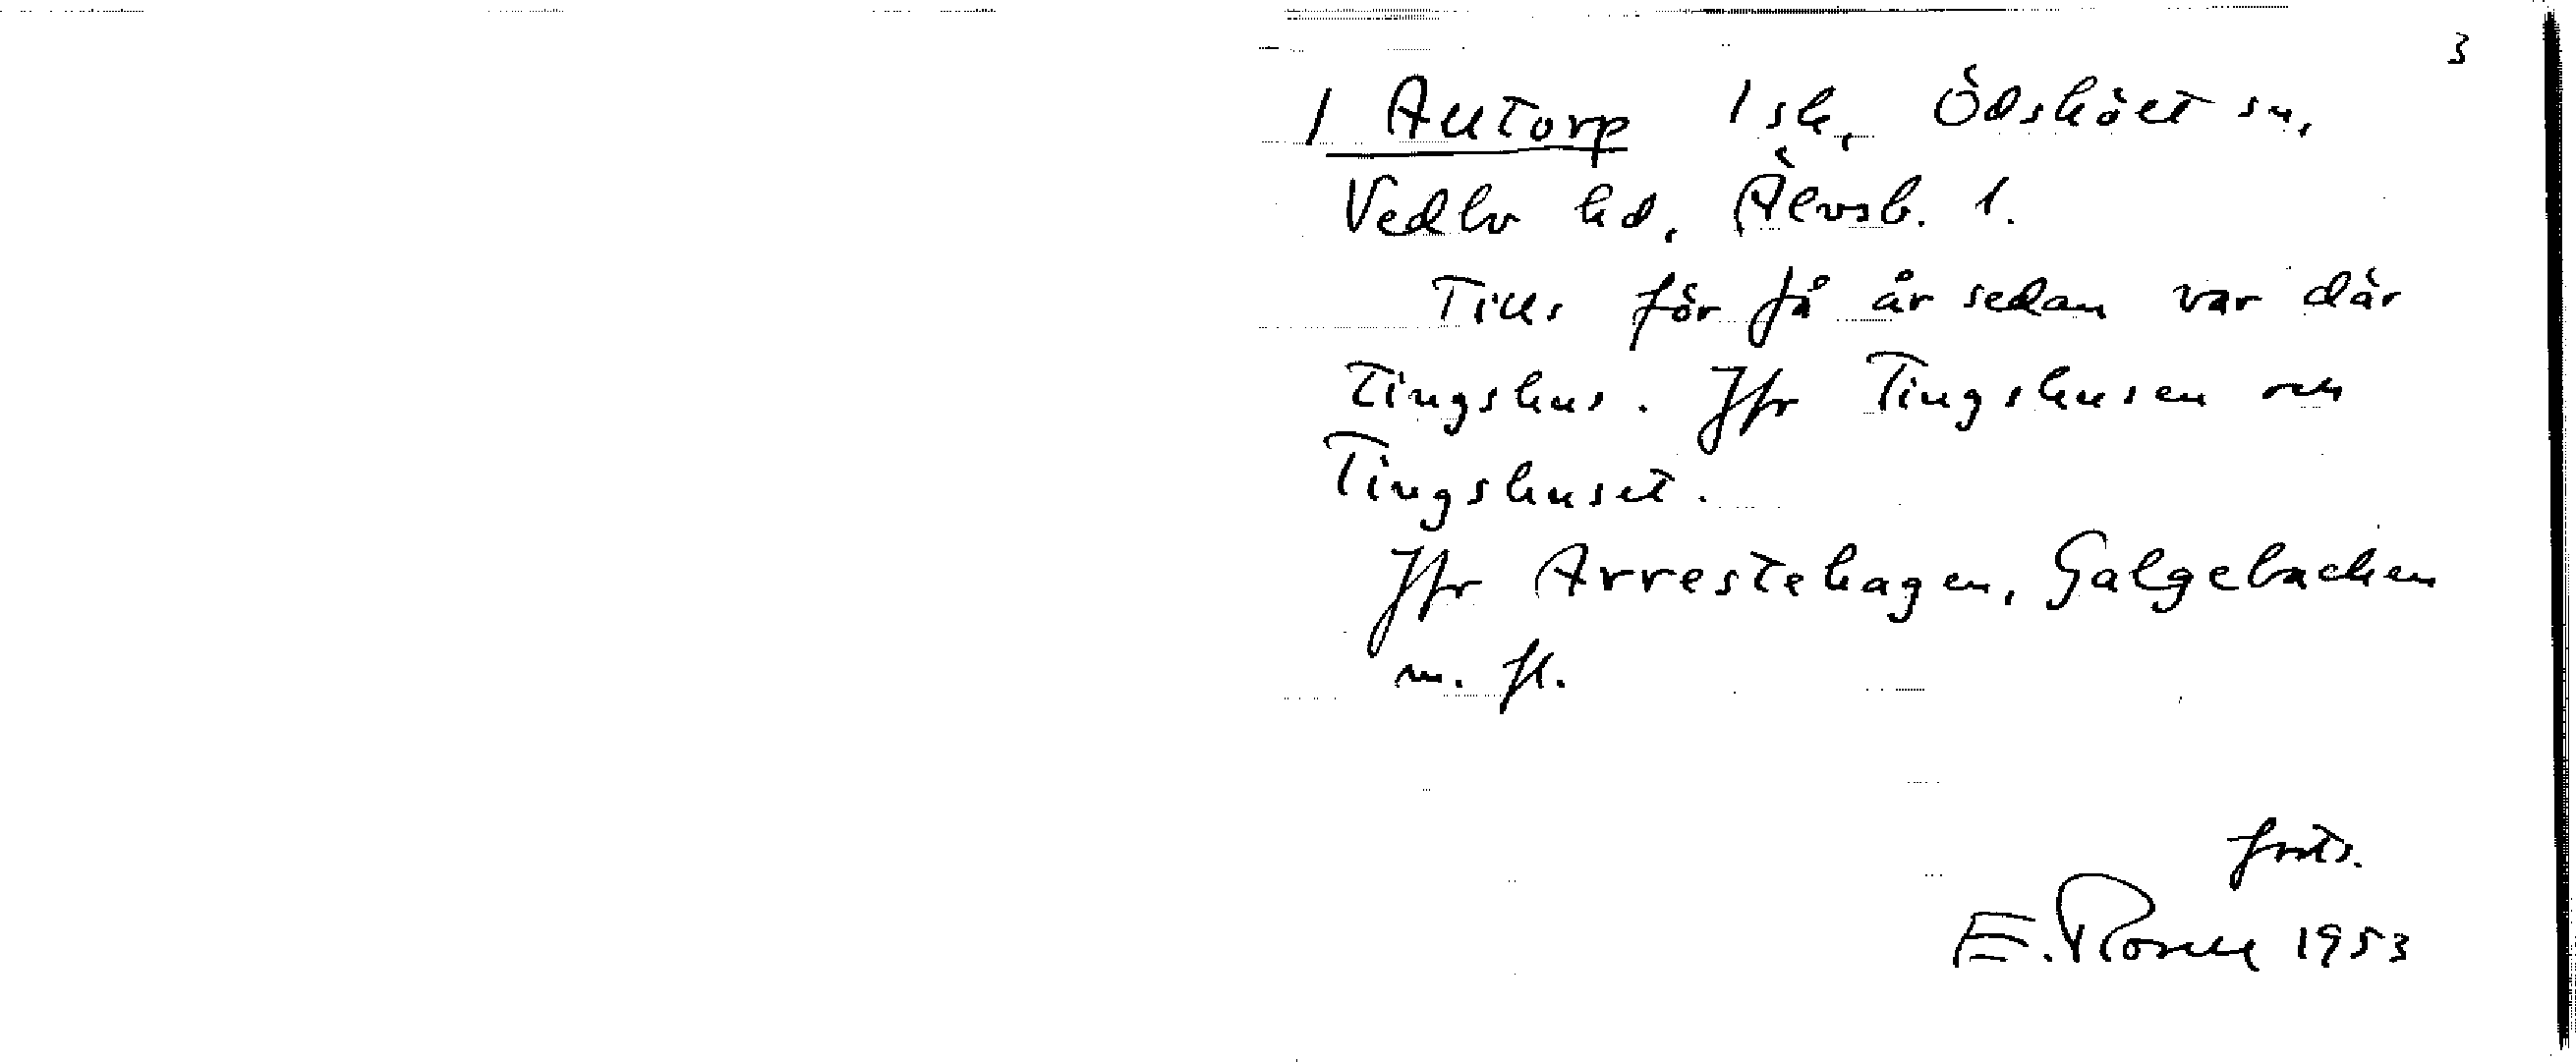 3
1 Alltorp 1 sk, Ödskölt sn,
Vedbo hd, Älvsb. l.
Tills för få år sedan var där
tingshus. Jfr Tingshusen och
Tingshuset.
Jfr Arrestehagen, Galgebacken
m. fl.
forts.
E. Rosell 1953